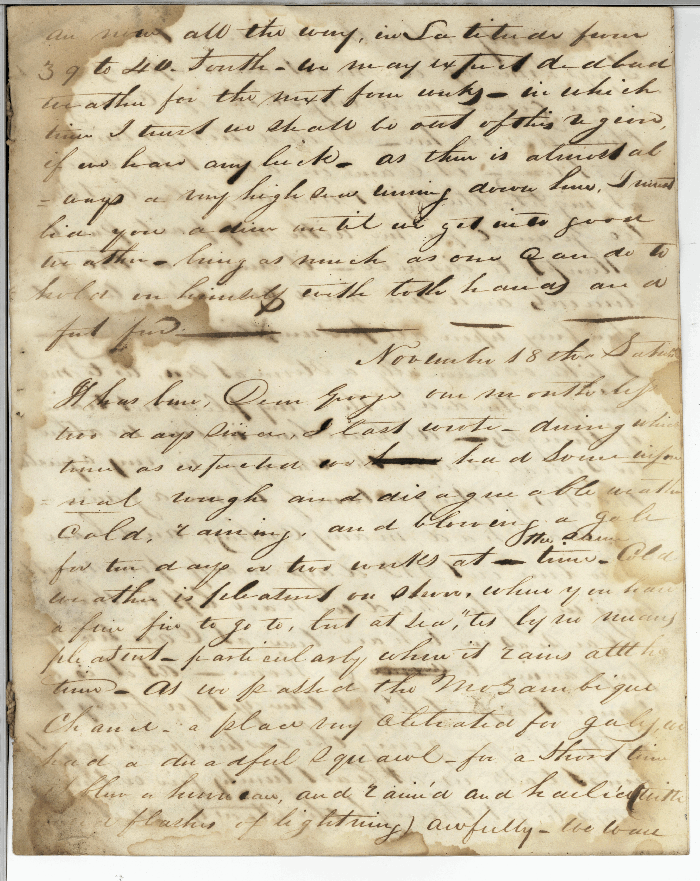 are now all the way, in Latitude from
39 to 40. South - we may expect dedbad
weather for the next four weeks - in which
time I trust we shall be out of this region,
if we have any luck - as there is almost al
- ways a very high sea runing down here. I must
bid you adieu until we get into good
weather - being as much as one can do to
hold on himself with both hands and
feet
November 18th Saturd
It has been, Dear George one month less
two days since, I last wrote - during which
time as expected we had some infer
- nal rough and disagreeable weather
cold, raining, and blowing a gale
for ten days or two weeks at the same time - Cold
weather is pleatent on shore, where you have
a fine fire to go to, but at sea, 'tis by no means
pleatent - particularly when it rains all the
time - As we passed the Mozambique
Channel - a place very celebrated for gales, we
had a dreadful squawl - for a short time
it blew a hurricane, and rain'd and hailed (with
flashes of lightning) awfully - we were